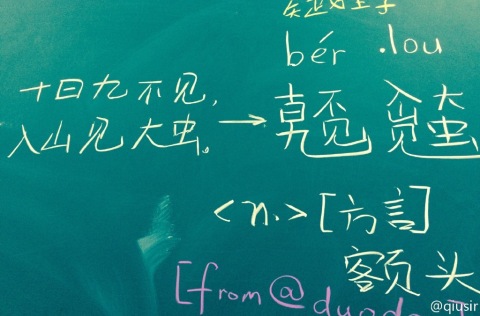 bér .lou
十日九不见，
入山见大虫。→
<n.> [方言]
额头
[from@
@qiusir